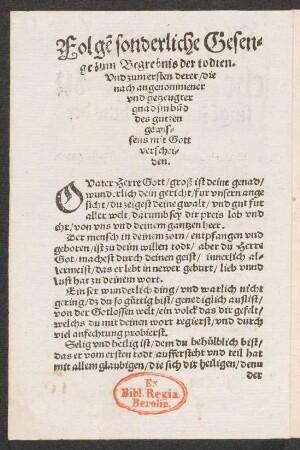 Folgẽ sonderliche Gesen-
ge zum Begrebnis der todten.
Und zum ersten derer/die
nach angenommener
vnd gezeugter
gnad im bũd
des gutzen
gewis-
sens mit Gott
verschei-
den.
O Vater Herre Gott/groß ist deine genad/
wunderlich dein gericht/fur vnsern ange
sicht/du zeigest deine gwalt/vnd gut fur
aller welt/darumb sey dir preis lob vnd
ehr/von vns vnd deinem gantzen heer.
Der mensch in deinem zorn/entpfangen vnd
geboren/ist zu deim willen todt/aber du Herre
Got/machest durch deinen geist/innerlich al-
lermeist/das er lebt in newer geburt/lieb vnnd
lust hat zu deinem wort.
Ein ser wunderlich ding/vnd warlich nicht
gering/dz du so gůttig bist/genediglich auflist/
von der Gotlossen welt/ein volck das dir gefelt/
welchs du mit deinen wort regierst/vnd durch
viel anfechtung probierst.
Selig vnd heilig ist/dem du behölblich bist/
das er vom ersten todt/aufferstcht vnd teil hat
mit allem glaubigen/die sich dir heiligen/denn
der
Ex
Bibl. Regia
Berolin.